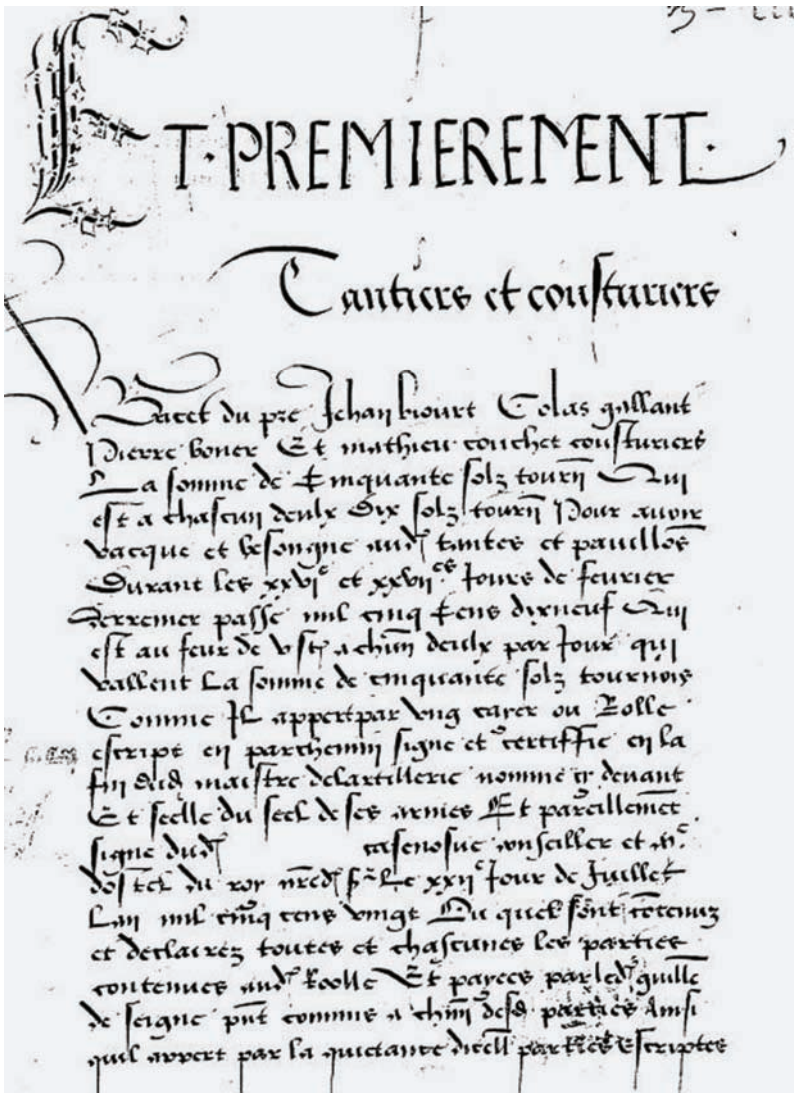 ET·PREMIEREMENT·
Tantiers et cousturiers
du pre Jehan Colas gallant
Pierre boner Et mathieu couchet cousturiers
La somme de Cinquante solz tourn Qui
est a chascun deulx Dix solz tourn Pour avoir
vacque et besongne aud tantes et pavillos
Durant les xxvi et xxvii es Jours de fevrier
derrenier passe mil cinq Cens dixneuf Qui
est au feur de v st a chun deulx par Jour qui
vallent La somme de cinquante solz tournois
Comme Il appert par ung cayer ou Rolle
escript en parchemin signe et certiffie en la
fin dud maistre delartillerie nomme cy devant
Et seelle du seel de ses armes Et pareillemet
signe dud conseiller et
dostel du roy nred sr Le xxii e Jour de Juillet
Lan mil cinq cens vingt Ou quel sont cotenuz
et declairez toutes et chascunes les parties
contenues aud Roolle Et payees par led guille
de seigne pnt commis a chun desd parties Ainsi
quil appert par la quictance dicell parties Escriptes